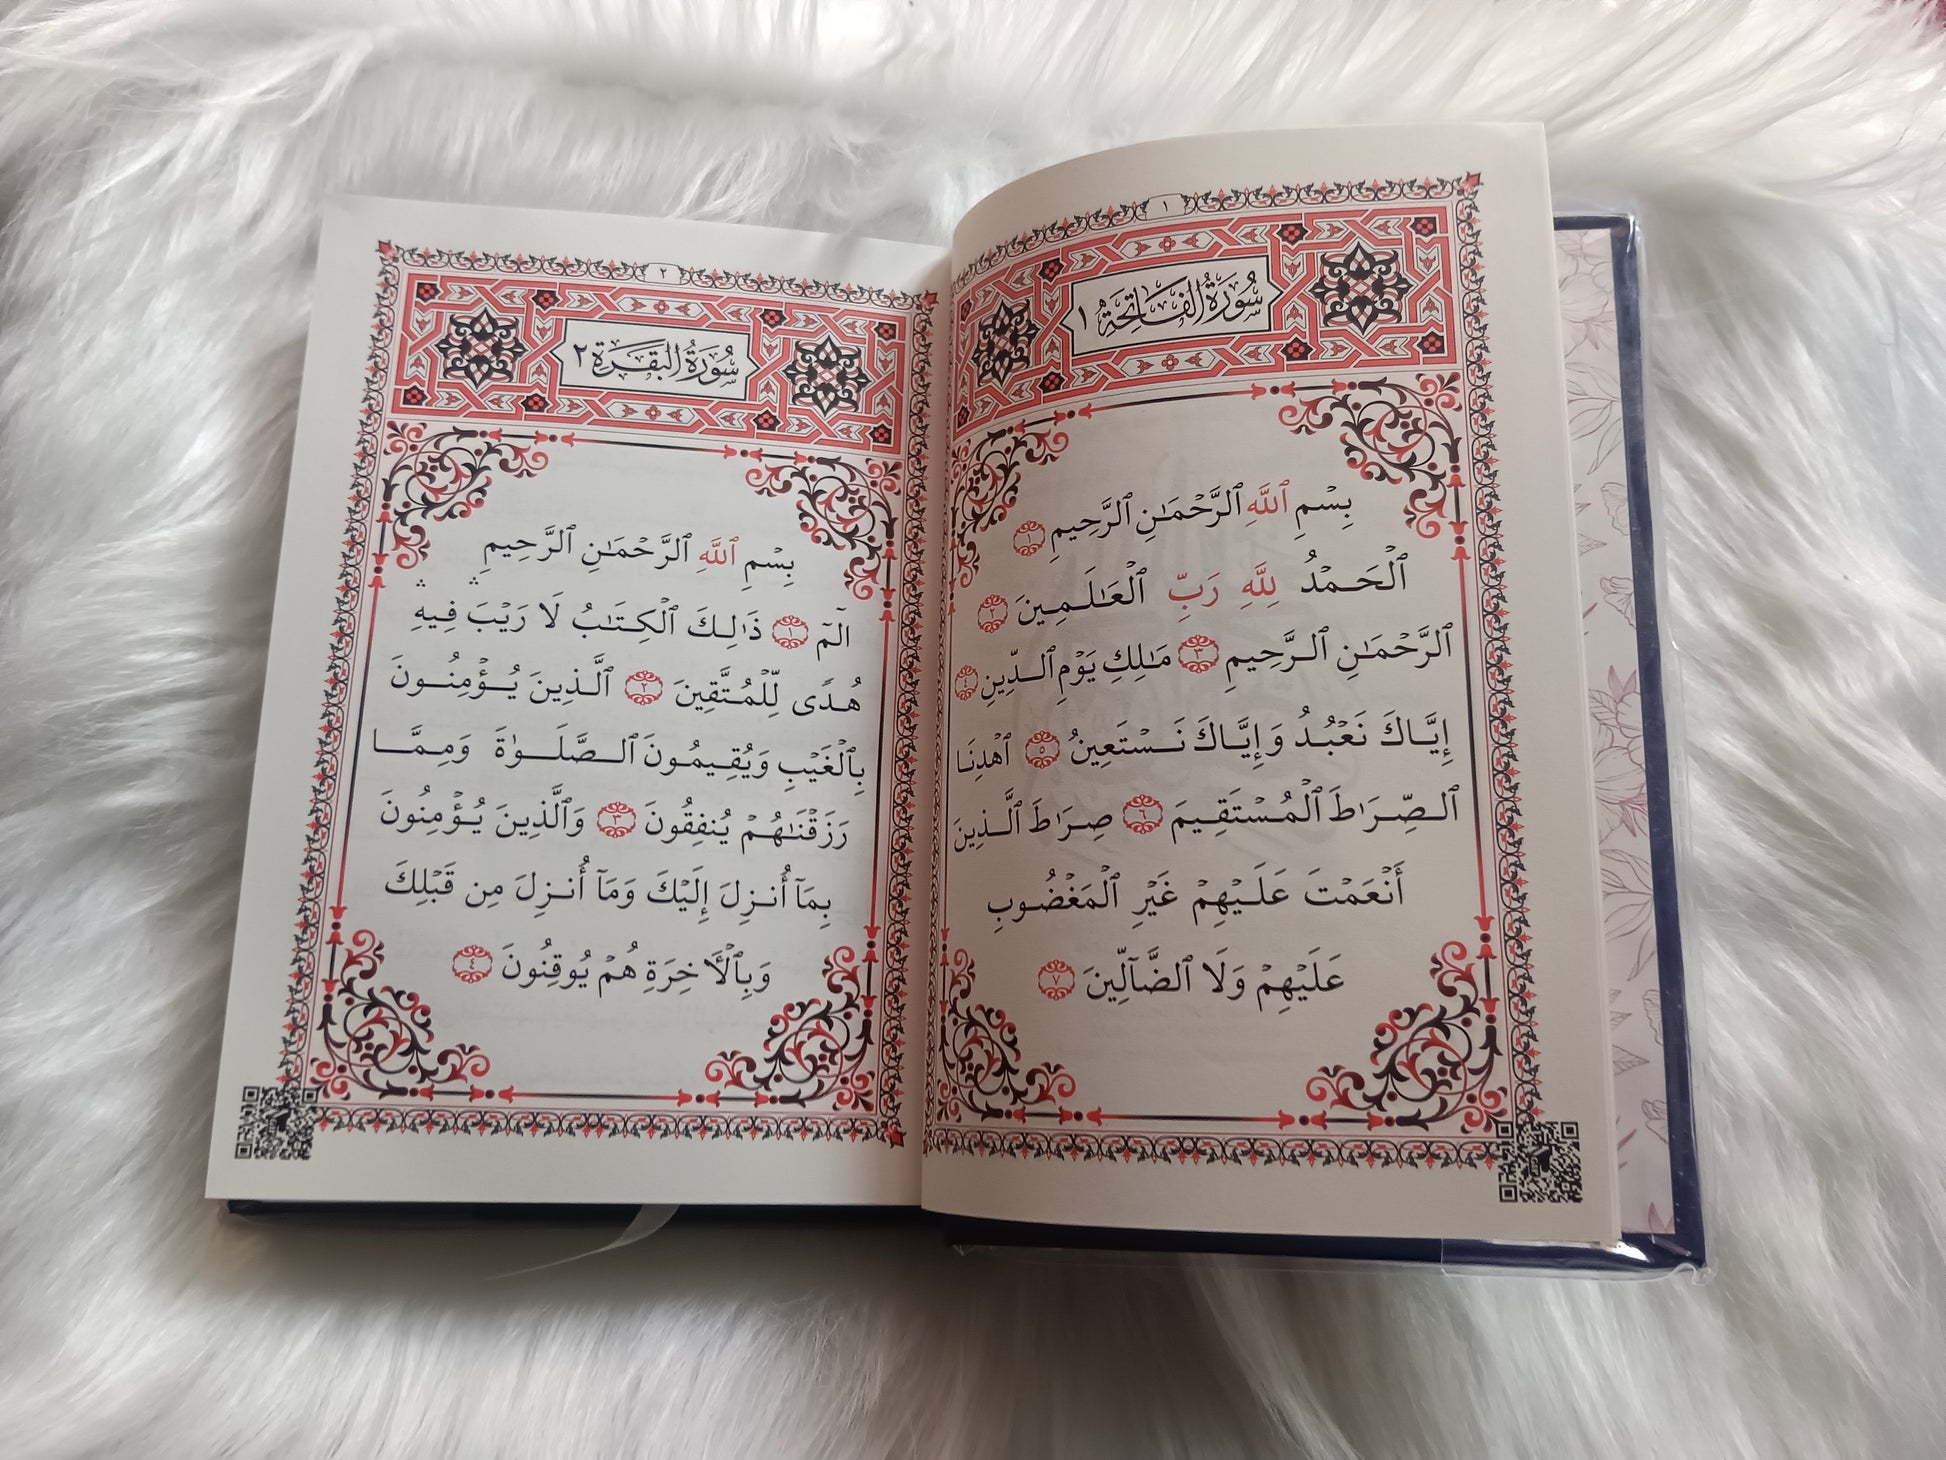 ١
سُورَةُ الْفَاتِحَةِ ١
بِسْمِ ٱللَّهِ ٱلرَّحْمَٰنِ ٱلرَّحِيمِ ١
ٱلْحَمْدُ لِلَّهِ رَبِّ ٱلْعَٰلَمِينَ ٢
ٱلرَّحْمَٰنِ ٱلرَّحِيمِ ٣ مَٰلِكِ يَوْمِ ٱلدِّينِ ٤
إِيَّاكَ نَعْبُدُ وَإِيَّاكَ نَسْتَعِينُ ٥ ٱهْدِنَا
ٱلصِّرَٰطَ ٱلْمُسْتَقِيمَ ٦ صِرَٰطَ ٱلَّذِينَ
أَنْعَمْتَ عَلَيْهِمْ غَيْرِ ٱلْمَغْضُوبِ
عَلَيْهِمْ وَلَا ٱلضَّآلِّينَ ٧
٢
سُورَةُ الْبَقَرَةِ ٢
بِسْمِ ٱللَّهِ ٱلرَّحْمَٰنِ ٱلرَّحِيمِ
الٓمٓ ١ ذَٰلِكَ ٱلْكِتَٰبُ لَا رَيْبَ ۛ فِيهِ ۛ
هُدًى لِّلْمُتَّقِينَ ٢ ٱلَّذِينَ يُؤْمِنُونَ
بِٱلْغَيْبِ وَيُقِيمُونَ ٱلصَّلَوٰةَ وَمِمَّا
رَزَقْنَٰهُمْ يُنفِقُونَ ٣ وَٱلَّذِينَ يُؤْمِنُونَ
بِمَآ أُنزِلَ إِلَيْكَ وَمَآ أُنزِلَ مِن قَبْلِكَ
وَبِٱلْأَخِرَةِ هُمْ يُوقِنُونَ ٤